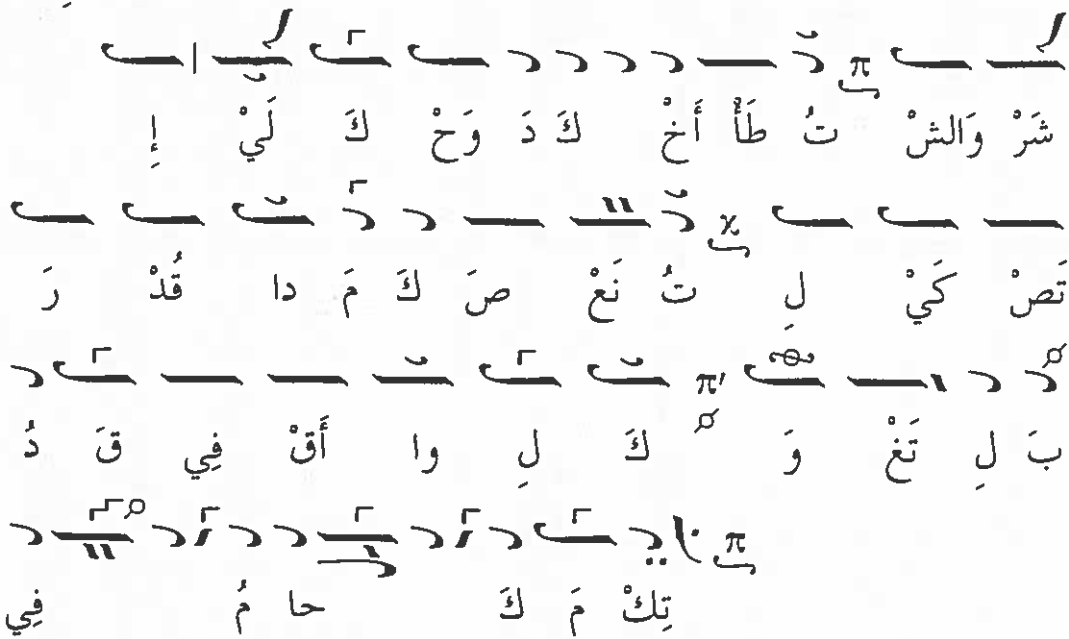 إِ لَيْ كَ وَحْ دَ كَ أَخْ طَأْ تُ π وَالشْ شَرْ
رَ قُدْ دا مَ كَ صَ نَعْ تُ χ لِ كَيْ تَصْ
دُ قَ فِي أَقْ وا لِ كَ π' وَ تَغْ لِ بَ
فِي مُ حا كَ مَ تِكْ π